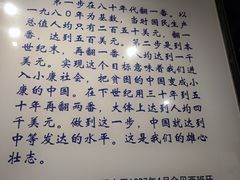 第一步在八十年代翻一番。以
一九八○年为基数，当时国民生产
总值人均只有二百五十美元，翻一
番，达到五百美元。第二步是到本
世纪末，再翻一番，人均达到一千
美元。实现这个目标意味着我们进
入小康社会，把贫困的中国变成小
康的中国。在下世纪用三十年到五
十年再翻两番，大体上达到人均四
千美元。做到这一步，中国就达到
中等发达的水平。这是我们的雄心
壮志。
1987年4月会见西班牙